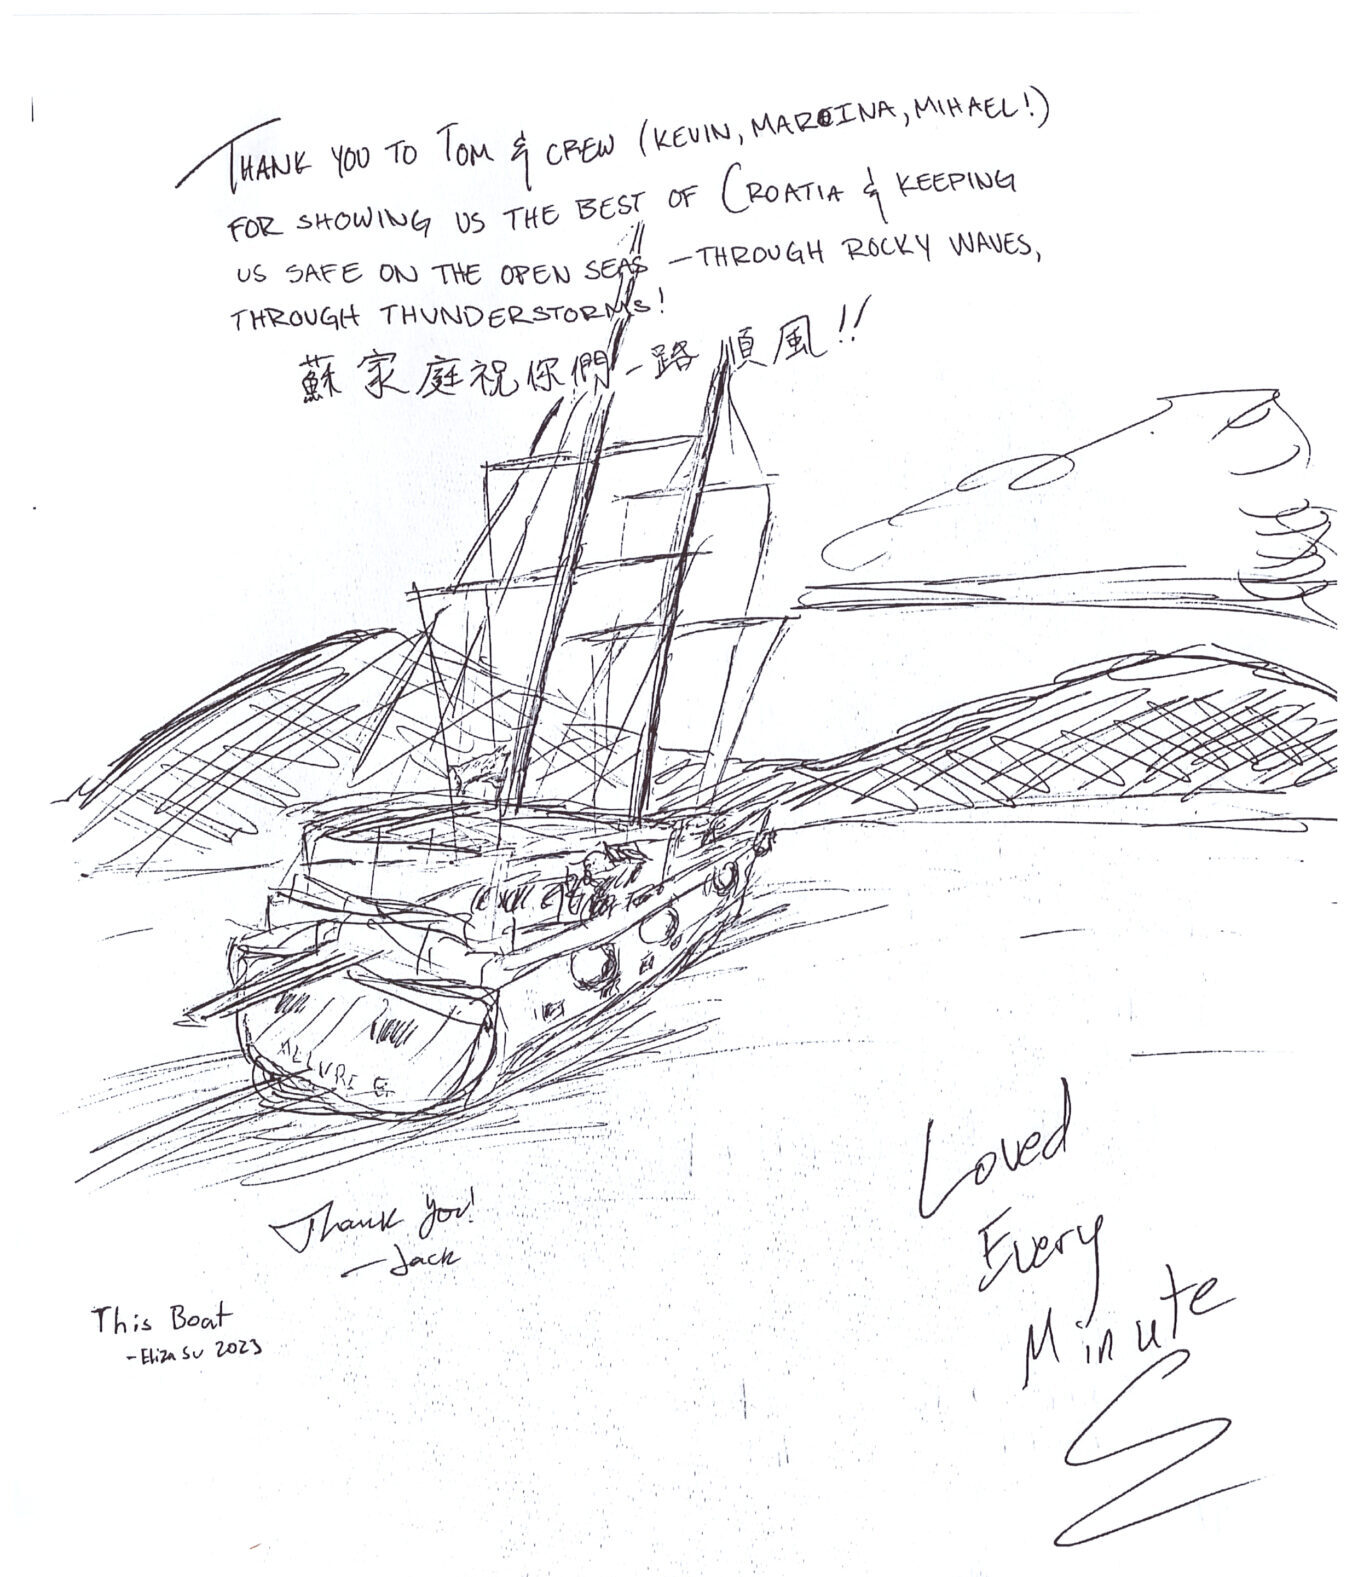 THANK YOU TO TOM & CREW (KEVIN, MARCINA, MIHAEL!)
FOR SHOWING US THE BEST OF CROATIA & KEEPING
US SAFE ON THE OPEN SEAS — THROUGH ROCKY WAVES,
THROUGH THUNDERSTORMS!
蘇家庭祝你們一路順風!!
ALLURE
Thank you!
— Jack
This Boat
- Eliza Su 2023
Loved
Every
Minute